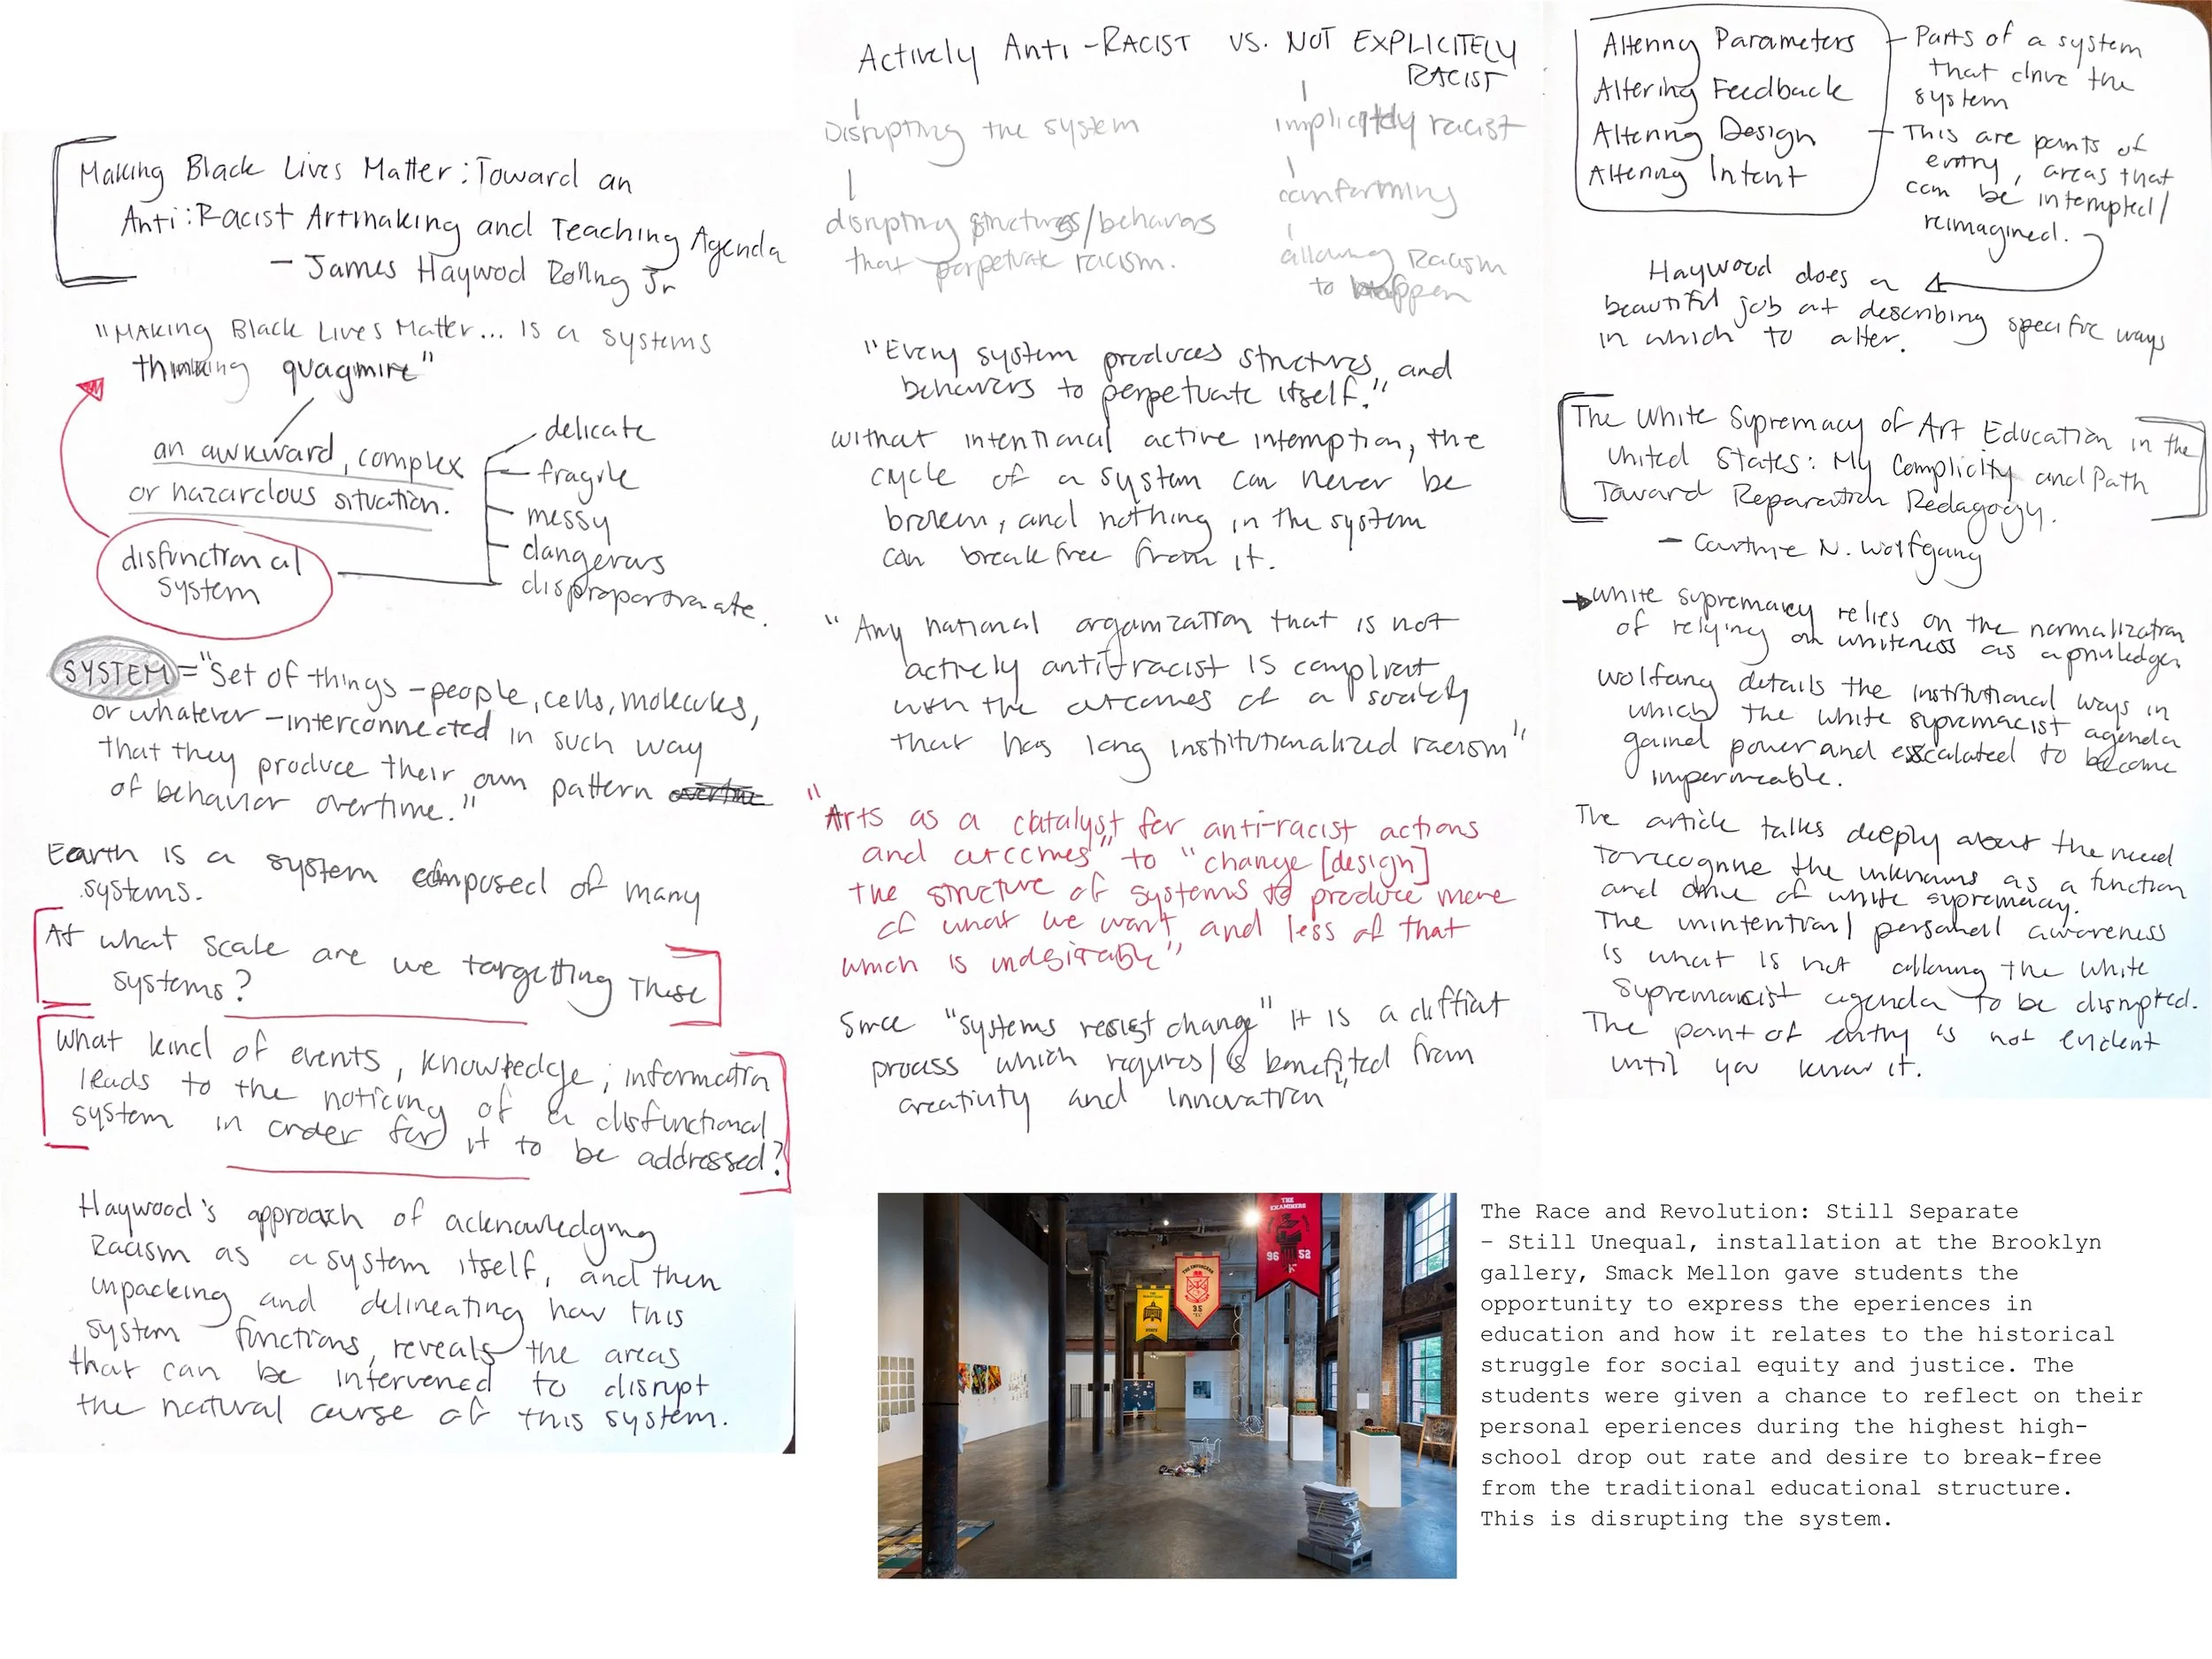 Making Black Lives Matter: Toward an
Anti: Racist Artmaking and Teaching Agenda
- James Haywod Rolling Jr
"Making Black Lives Matter... is a systems
thinking quagmire"
an awkward, complex
or hazardous situation.
disfunctional
system
delicate
fragile
messy
dangerous
disproportionate.
SYSTEM = "Set of things - people, cells, molecules,
or whatever - interconnected in such way
that they produce their own pattern
of behavior overtime."
Earth is a system composed of many
systems.
At what scale are we targetting These
systems?
What kind of events, knowledge, information
leads to the noticing of a disfunctional
system in order for it to be addressed?
Haywood's approach of acknowledging
Racism as a system itself, and then
unpacking and delineating how this
system functions, reveals the areas
that can be intervened to disrupt
the natural curse of this system.
Actively Anti-RACIST VS. NOT EXPLICITELY
RACIST
Disrupting the system
disrupting structures/behaviors
that perpetuate racism.
implicitly racist
conforming
allowing Racism
to happen
"Every system produces structures and
behaviors to perpetuate itself."
without intentional active interruption, the
cycle of a system can never be
broken, and nothing in the system
can break free from it.
"Any national organization that is not
actively anti-racist is complicit
with the outcomes of a society
that has long institutionalized racism"
"Arts as a catalyst for anti-racist actions
and outcomes" to "change [design]
the structure of systems to produce more
of what we want and less of that
which is undesirable"
Since "systems resist change" it is a difficult
process which requires/is benefitted from
creativity and innovation"
Altering Parameters
Altering Feedback
Altering Design
Altering Intent
- Parts of a system
that drive the
system
- This are points of
entry, areas that
can be interrupted/
reimagined.
Haywood does a
beautiful job at describing specific ways
in which to alter.
The White Supremacy of Art Education in the
United States: My Complicity and Path
Toward Reparation Pedagogy.
- Courtnie N. Wolfgang
→ White supremacy relies on the normalization
of relying on whiteness as a privledge.
Wolfang details the institutional ways in
which the white supremacist agenda
gained power and escalated to become
impermeable.
The article talks deeply about the need
to recognize the unknowns as a function
and drive of white supremacy.
The unintentional personal awareness
is what is not allowing the white
supremacist agenda to be disrupted.
The point of entry is not evident
until you know it.
THE
EXAMINERS
96 52
The Race and Revolution: Still Separate
– Still Unequal, installation at the Brooklyn
gallery, Smack Mellon gave students the
opportunity to express the eperiences in
education and how it relates to the historical
struggle for social equity and justice. The
students were given a chance to reflect on their
personal eperiences during the highest high-
school drop out rate and desire to break-free
from the traditional educational structure.
This is disrupting the system.